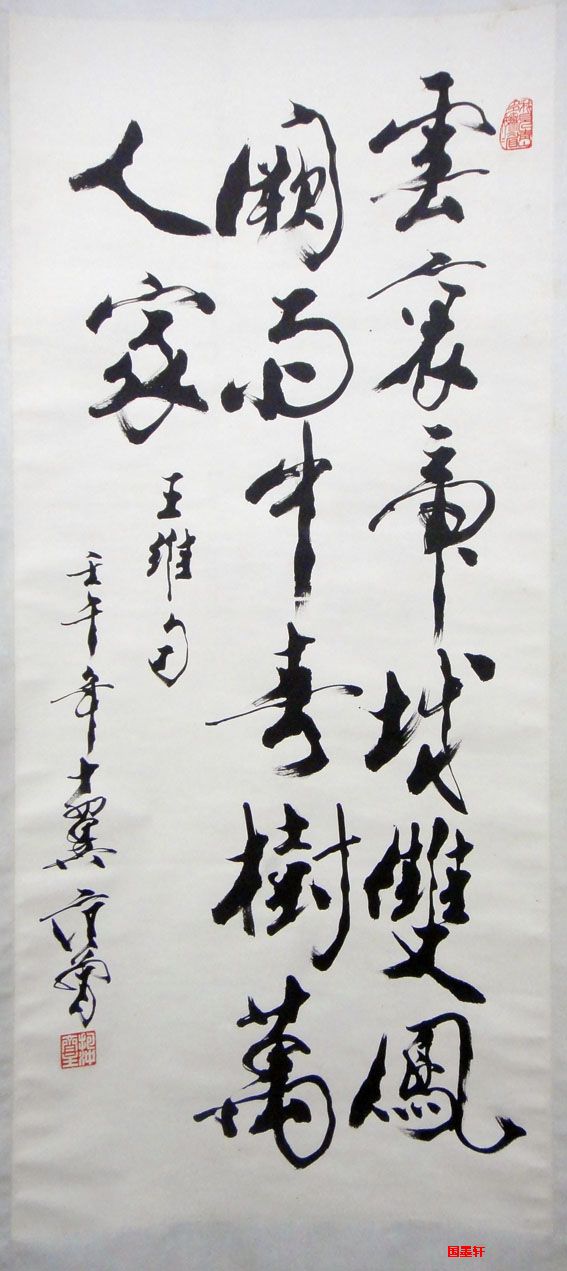 雲裏帝城雙鳳
闕雨中春樹萬
人家
王維句
壬午年十翼范曾
国墨轩